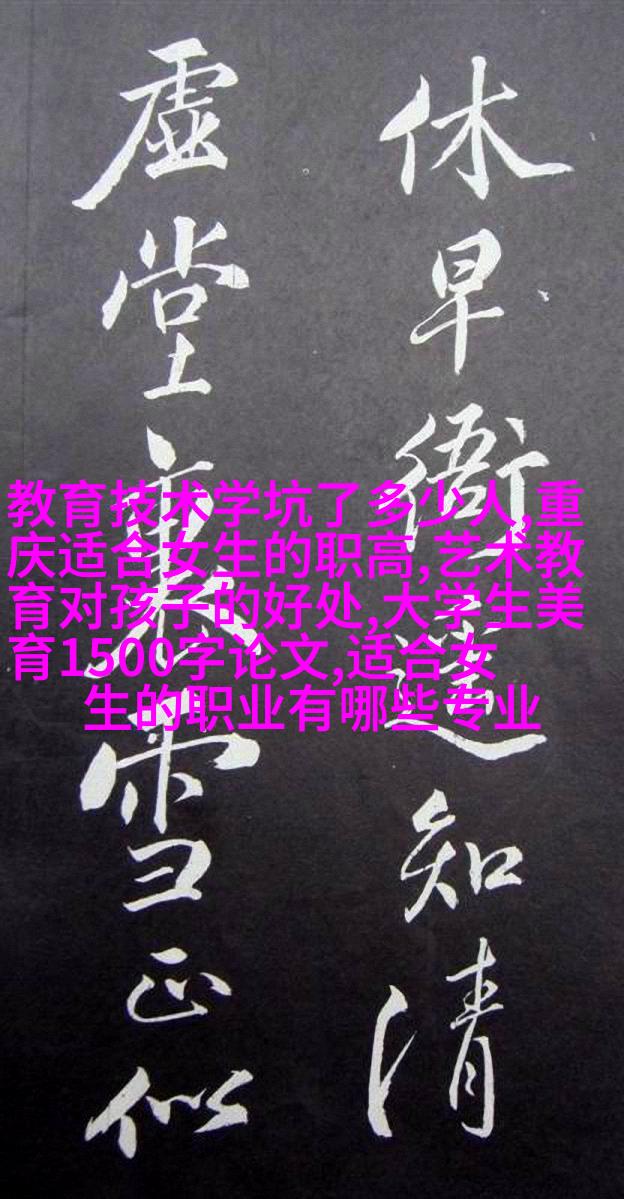 休早衙遙知清
虛堂裏雪正似
教育技术学坑了多少人,重
庆适合女生的职高,艺术教
育对孩子的好处,大学生美
育1500字论文,适合女
生的职业有哪些专业